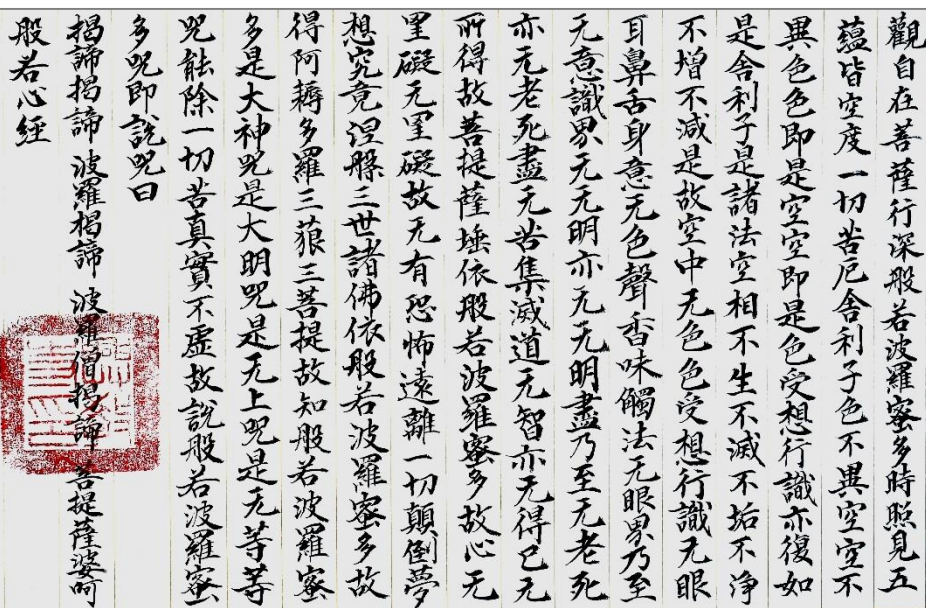 觀自在菩薩行深般若波羅蜜多時照見五
蘊皆空度一切苦厄舍利子色不異空空不
異色色即是空空即是色受想行識亦復如
是舍利子是諸法空相不生不滅不垢不淨
不增不減是故空中无色色受想行識无眼
耳鼻舌身意无色聲香味觸法无眼界乃至
无意識界无无明亦无无明盡乃至无老死
亦无老死盡无苦集滅道无智亦无得已无
所得故菩提薩埵依般若波羅蜜多故心无
罣礙无罣礙故无有恐怖遠離一切顛倒夢
想究竟涅槃三世諸佛依般若波羅蜜多故
得阿耨多羅三藐三菩提故知般若波羅蜜
多是大神咒是大明咒是无上咒是无等等
咒能除一切苦真實不虛故說般若波羅蜜
多咒即說咒曰
揭諦揭諦 波羅揭諦 波羅僧揭諦 菩提薩婆訶
般若心經